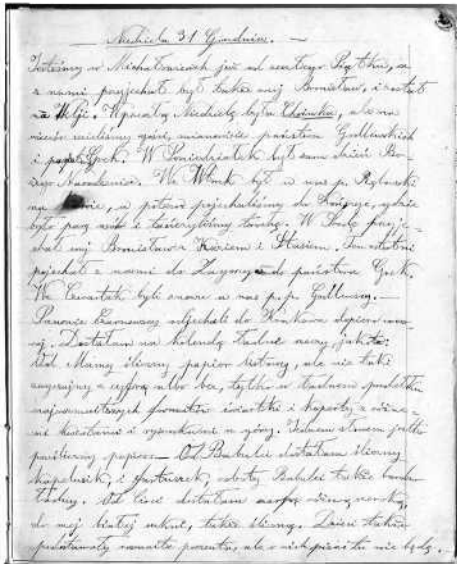 Niedziela 31 Grudnia. —
Jesteśmy w Michałowicach już od zeszłego Piątku, a
z nami przyjechał był także wuj Bronisław, i został
na Wilji. W przeszłą Niedzielę była Choinka, a
wieczór mieliśmy gości, mianowicie państwa Godlewskich
i Gock. W Poniedziałek był sam dzień Bo-
żego Narodzenia. We Wtorek był u nas p.
na, a potem pojechaliśmy do, gdzie
było parę osób i tańczyliśmy trochę. W Środę przyje-
chał wuj Bronisław z Kaziem i Stasiem. Ten ostatni
pojechał z nami do do państwa Gock.
We Czwartek byli znowu u nas p.p. —
Panowie odjechali do dopiero wczo-
raj. Dostałam na kolendę ładne rzeczy, jak to:
Od Mamy śliczny papier listowy, ale nie taki
zwyczajny z cyfrą albo bez, tylko w ładnem pudełku
najrozmaitszych formatów ćwiartki i koperty z różne-
mi kwiatami i rysunkami u góry. Jednem słowem jakiś
papier — Od Babuli dostałam śliczny
kapelusik i fartuszek, roboty Babulci także bardzo
ładny. Od Cioci dostałam różową
do mej białej sukni, także śliczną. Dzieci także
podostawały rozmaite prezenta, ale o nich pisać tu nie będę.